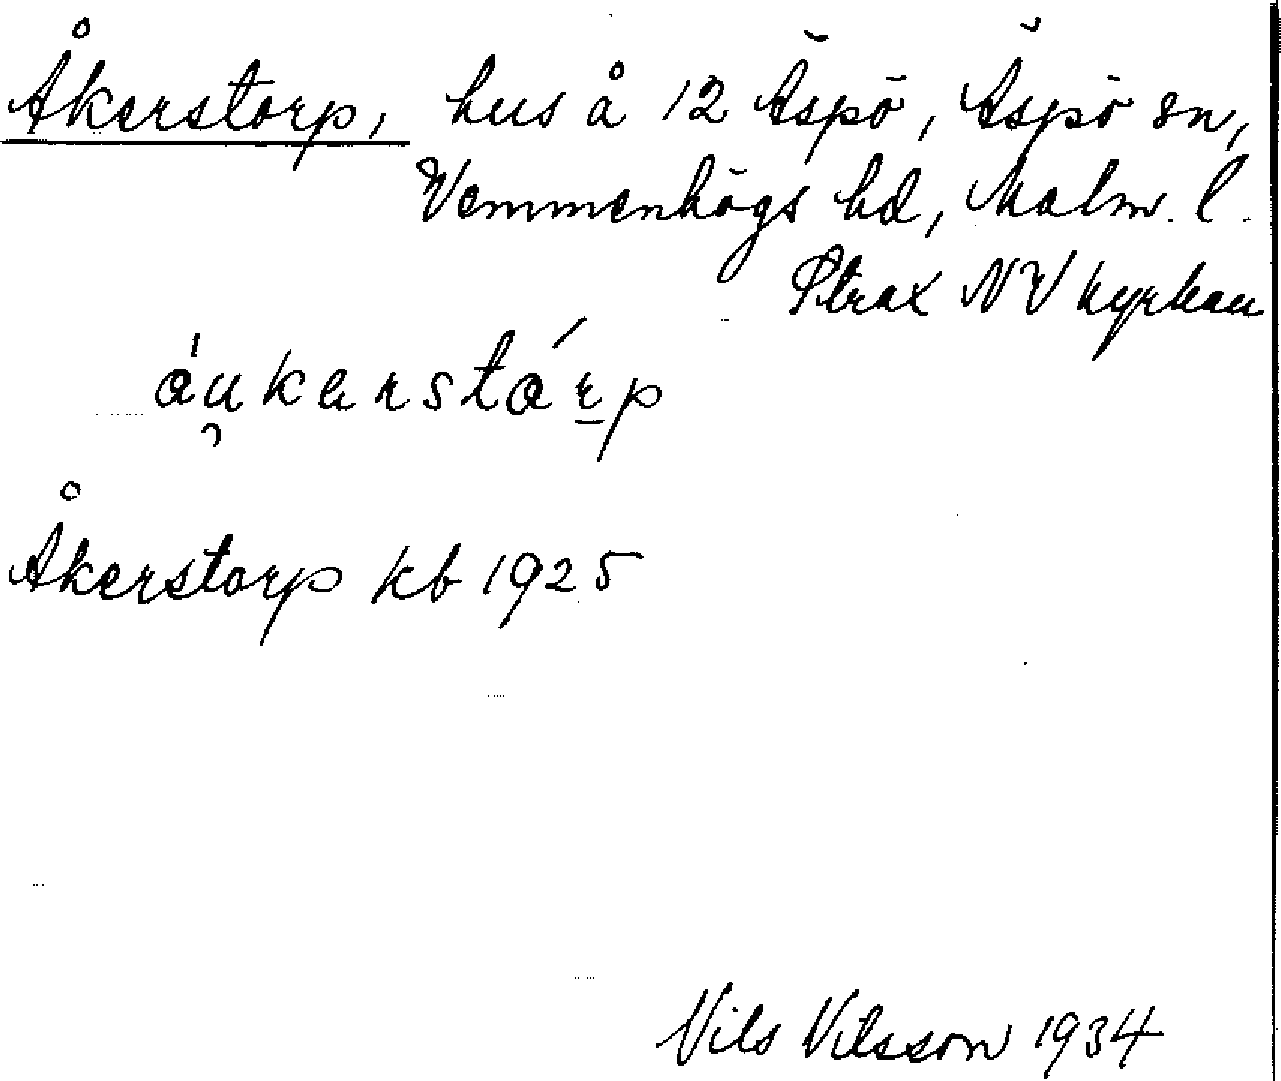 Åkerstorp, hus å 12 Äspö, Äspö sn,
Vemmenhögs hd, Malm. l.
Strax NV kyrkan
áu̯karstárp
Åkerstorp kb 1925
Nils Nilsson 1934